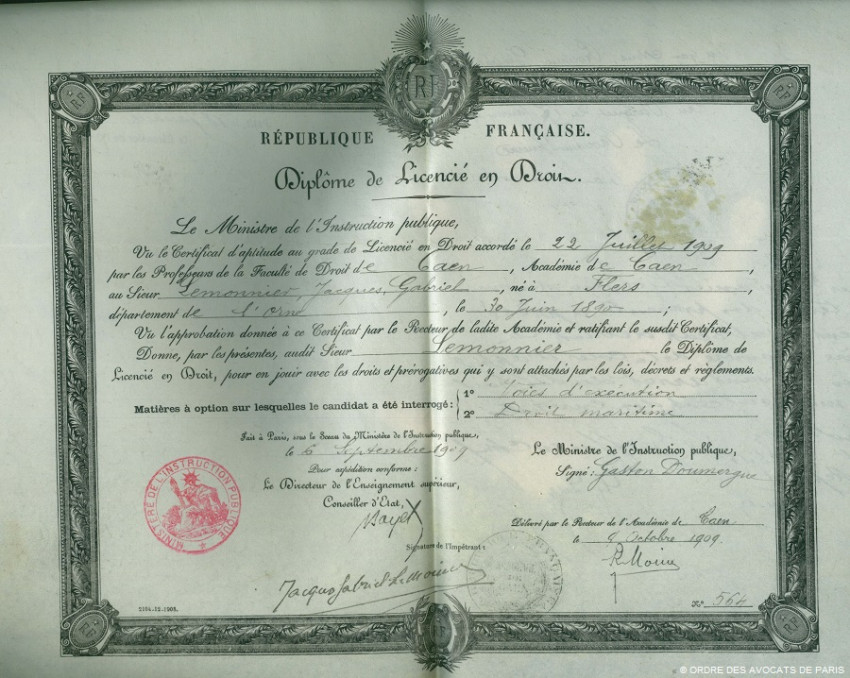 RF
RF
RF
RÉPUBLIQUE FRANÇAISE.
Diplôme de Licencié en Droit.
Le Ministre de l'Instruction publique,
Vu le Certificat d'aptitude au grade de Licencié en Droit accordé le 22 Juillet 1909
par les Professeurs de la Faculté de Droit de Caen, Académie de Caen,
au Sieur Lemonnier, Jacques, Gabriel, né à Flers,
département de l'Orne, le 30 Juin 1890;
Vu l'approbation donnée à ce Certificat par le Recteur de ladite Académie et ratifiant le susdit Certificat,
Donne, par les présentes, audit Sieur Lemonnier le Diplôme de
Licencié en Droit, pour en jouir avec les droits et prérogatives qui y sont attachés par les lois, décrets et règlements.
Matières à option sur lesquelles le candidat a été interrogé:
1º Voies d'exécution
2º Droit maritime
Fait à Paris, sous le Sceau du Ministère de l'Instruction publique,
le 6 Septembre 1909
Pour expédition conforme:
Le Directeur de l'Enseignement supérieur,
Conseiller d'État,
Bayet
Le Ministre de l'Instruction publique,
Signé: Gaston Doumergue
MINISTÈRE DE L'INSTRUCTION PUBLIQUE
Délivré par le Recteur de l'Académie de Caen
le 9 Octobre 1909.
Signature de l'Impétrant:
Jacques Gabriel Lemonnier
Nº 564
RF
RF
© ORDRE DES AVOCATS DE PARIS